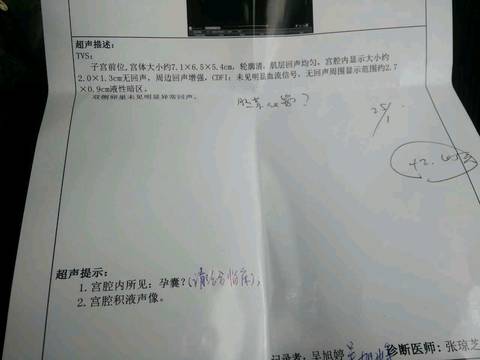 超声描述：
TVS：
子宫前位，宫体大小约7.1×6.5×5.4cm，轮廓清，肌层回声均匀。宫腔内显示大小约
2.0×1.3cm无回声，周边回声增强，CDFI：未见明显血流信号。无回声周围显示范围约2.7
×0.9cm液性暗区。
双侧卵巢未见明显异常回声。
25/1
超声提示：
1.宫腔内所见：孕囊？(请结合临床)。
2.宫腔积液声像。
记录者：吴旭婷 诊断医师：张琼芝